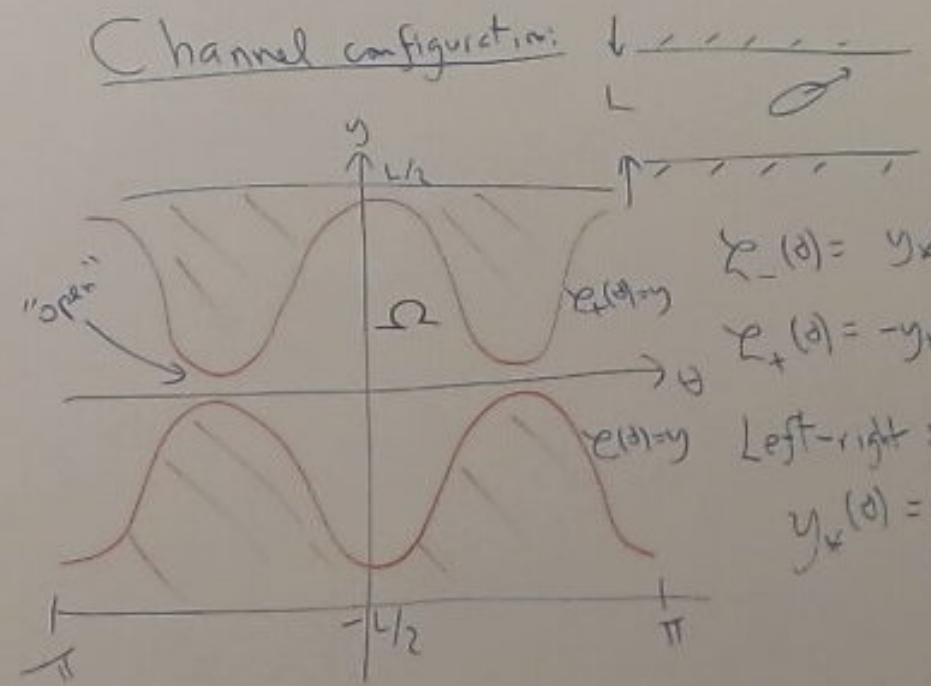 Channel configuration:
L
y
L/2
"open"
Ω
ζ₊(θ)=y
θ
ζ(θ)=y
-π
-L/2
π
ζ₋(θ) = y
ζ₊(θ) = -y
Left-right
y*(θ) =